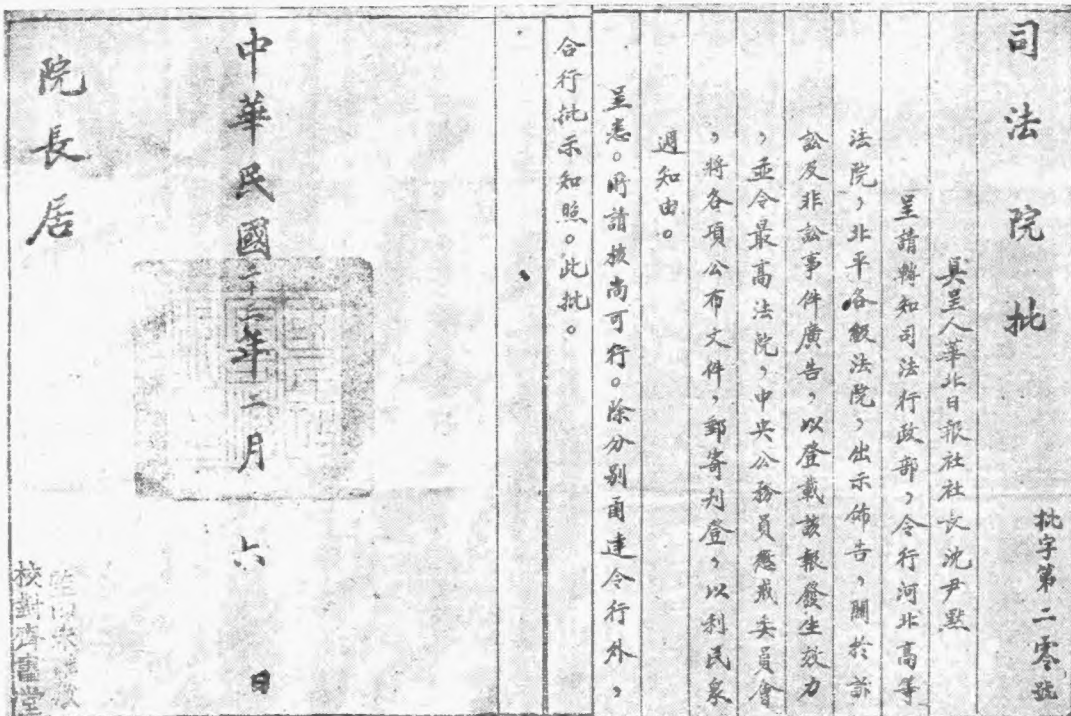 司法院批
批字第二零號
具呈人華北日報社社長沈尹默
呈請轉知司法行政部，令行河北高等
法院，北平各級法院，出示佈告，關於訴
訟及非訟事件廣告，以登載該報發生效力
，並令最高法院，中央公務員懲戒委員會
，將各項公布文件，郵寄刋登，以利民衆
週知由。
呈悉。所請核尚可行。除分別函達令行外，
合行批示知照。此批。
中華民國二十二年二月六日
院長居
校對齊書堂